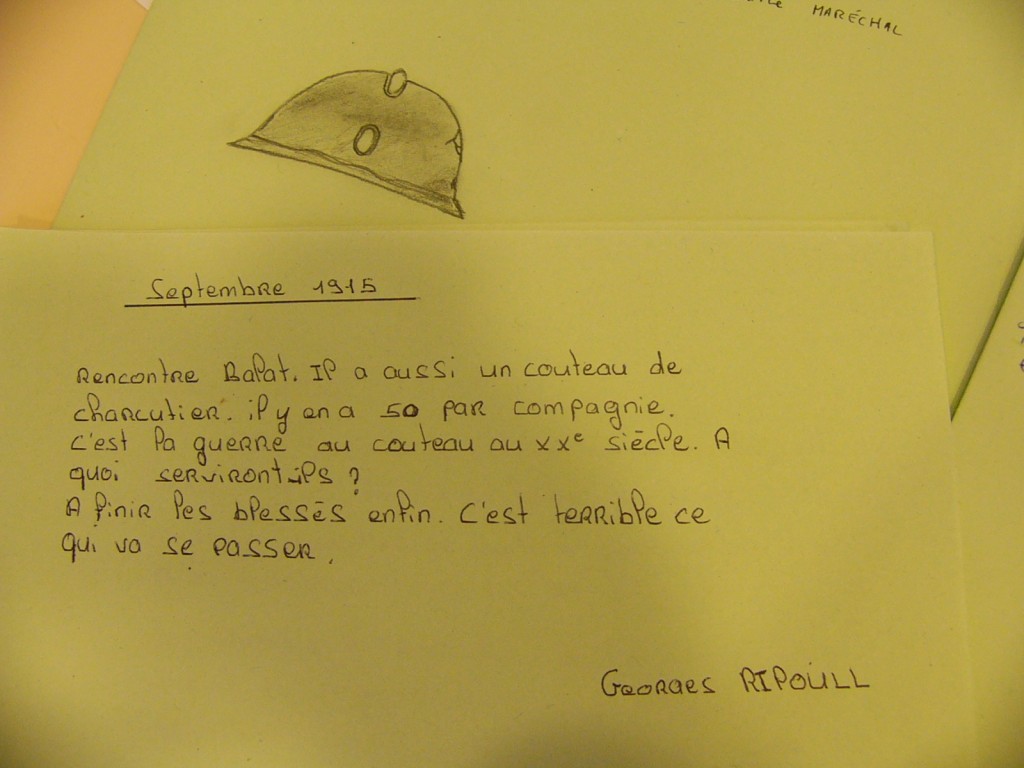 MARÉCHAL
Septembre 1915
Rencontre Balat. Il a aussi un couteau de
charcutier. il y en a 50 par compagnie.
C'est la guerre au couteau au XXe siècle. A
quoi serviront-ils ?
A finir les blessés enfin. C'est terrible ce
qui va se passer.
Georges RIPOULL